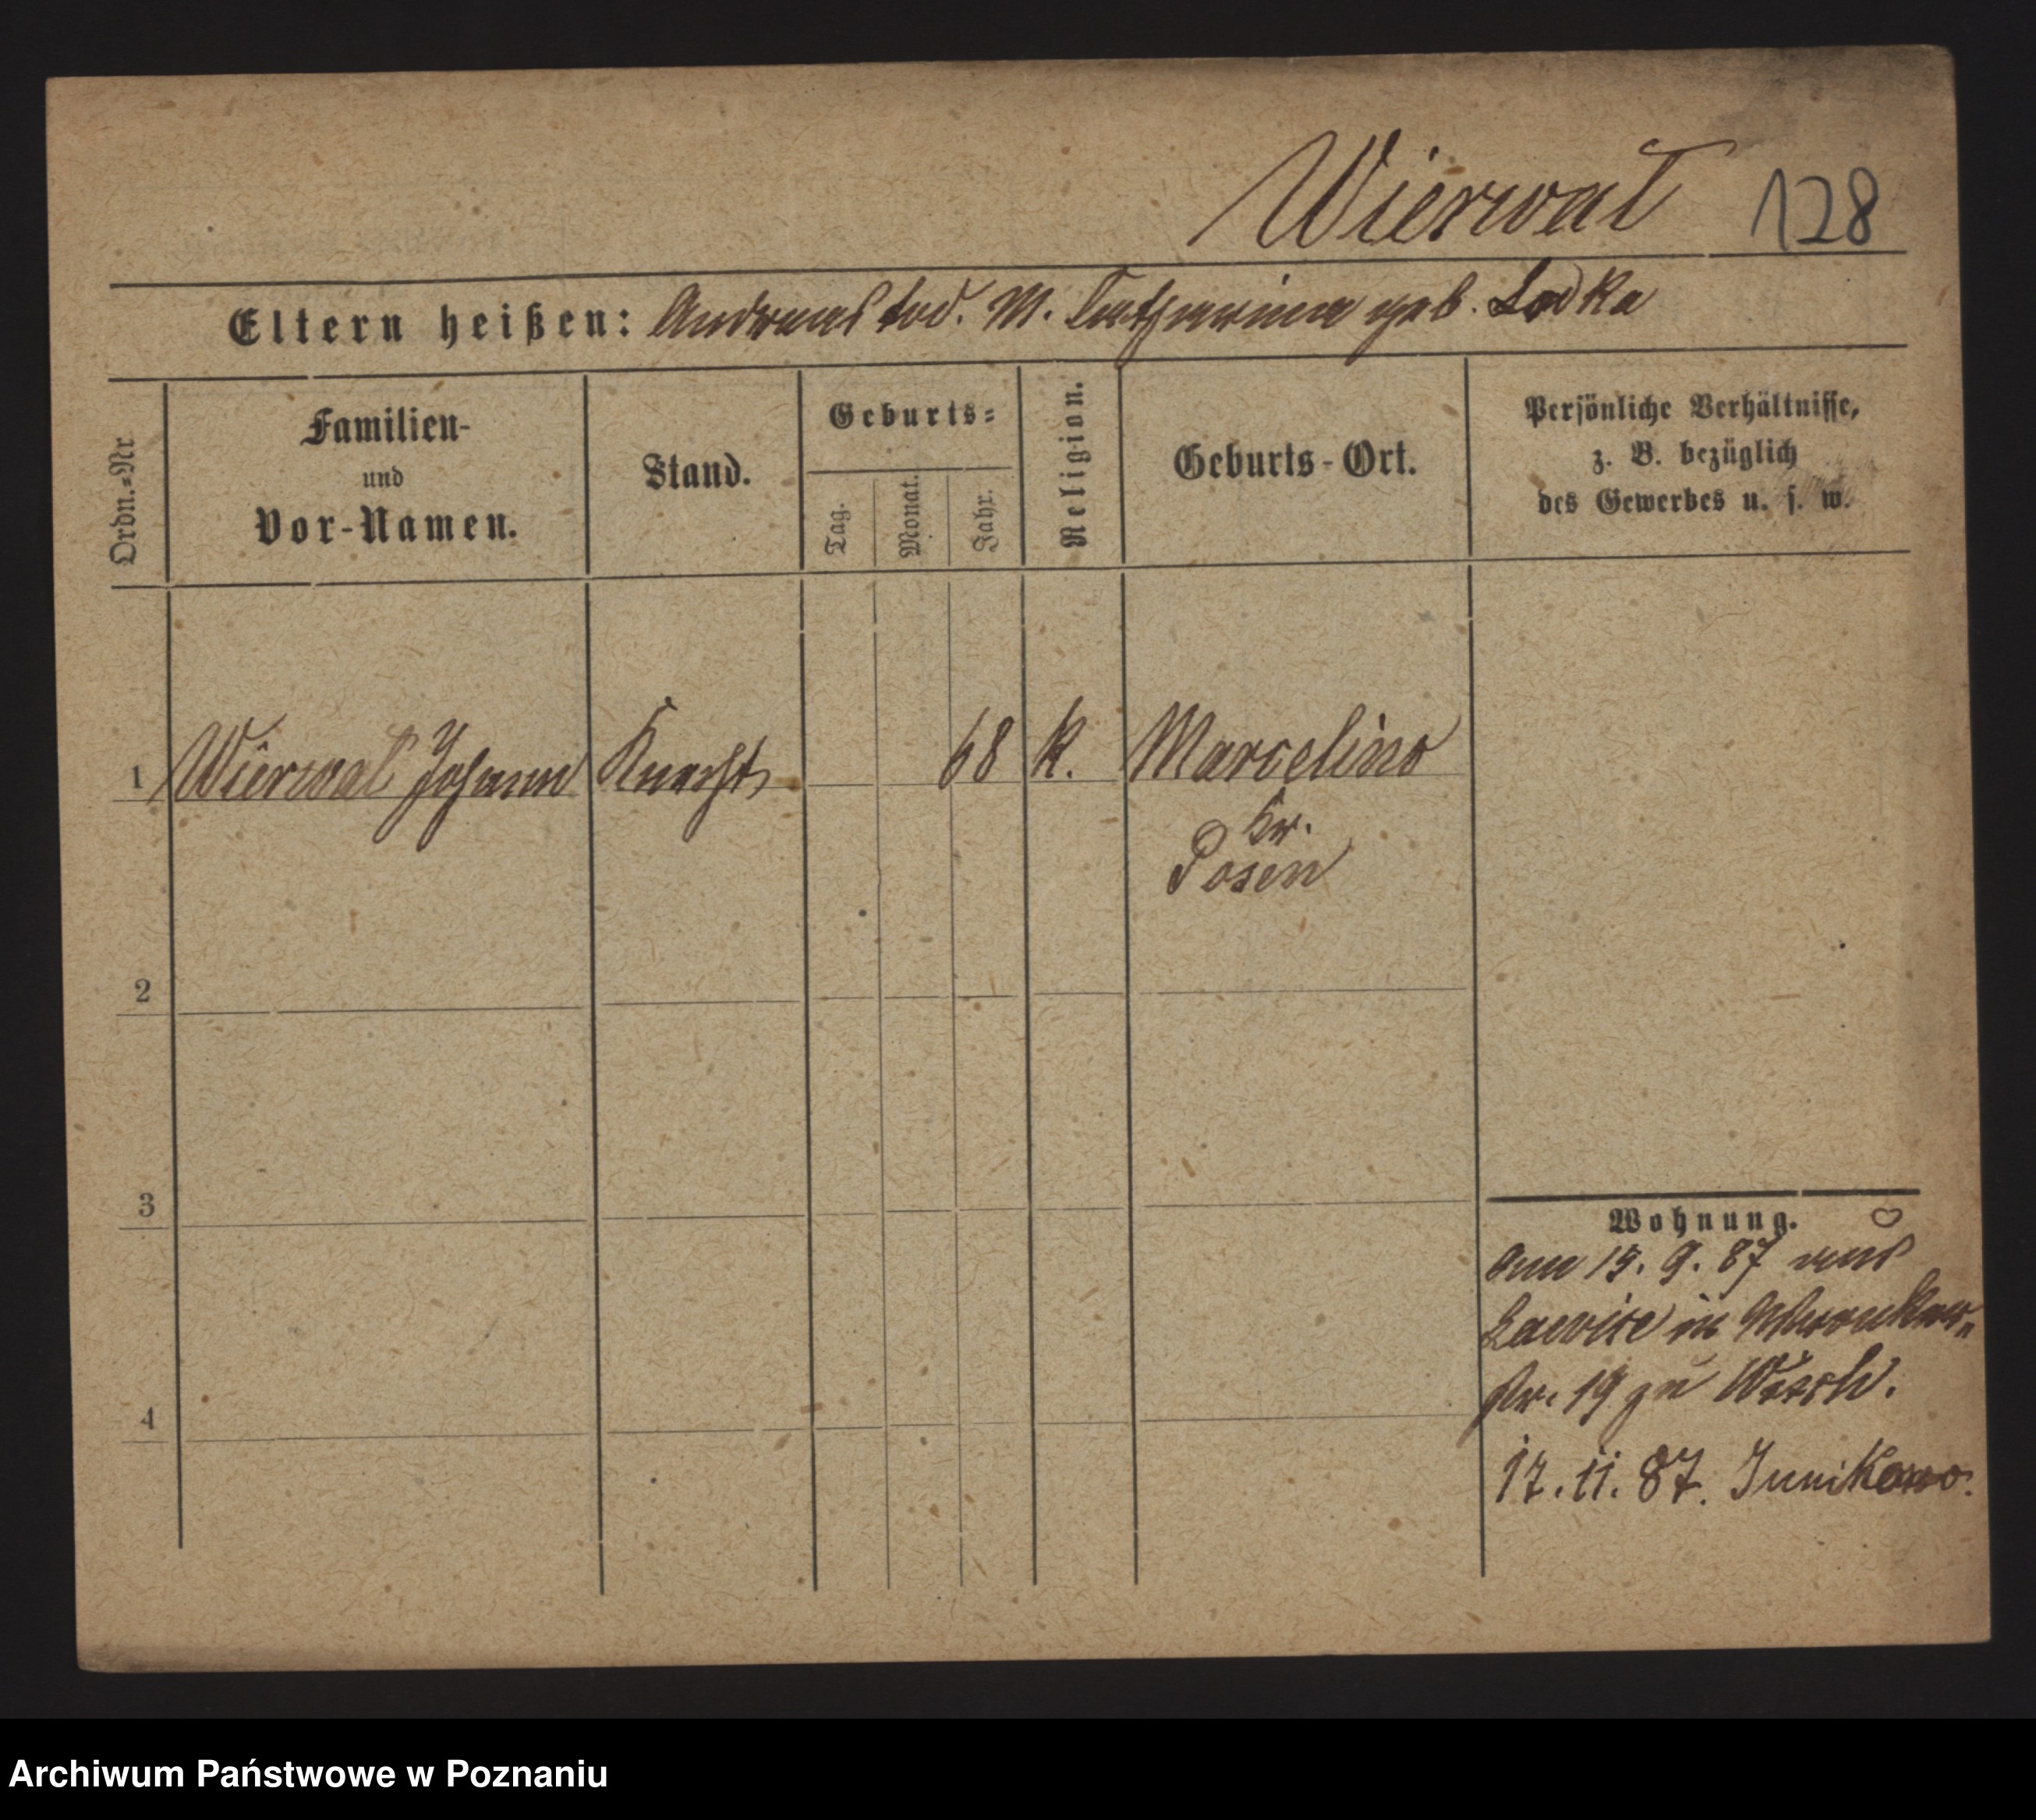 Wierwat 128
Eltern heißen: Andreas tod. M. Catharina geb. Lodka
Ordn.=Nr
Familien-
und
Vor-Namen.
Stand.
Geburts=
Tag.
Monat.
Jahr.
Religion.
Geburts-Ort.
Persönliche Verhältnisse,
z. B. bezüglich
des Gewerbes u. s. w.
1 Wierwat Johann Knecht 68 k. Marcelino
Kr.
Posen
2
3
4
Wohnung.
am 15. 9. 87 aus
Lawice in Wronker-
str. 19 zu
17. 11. 87. Junikowo.
Archiwum Państwowe w Poznaniu